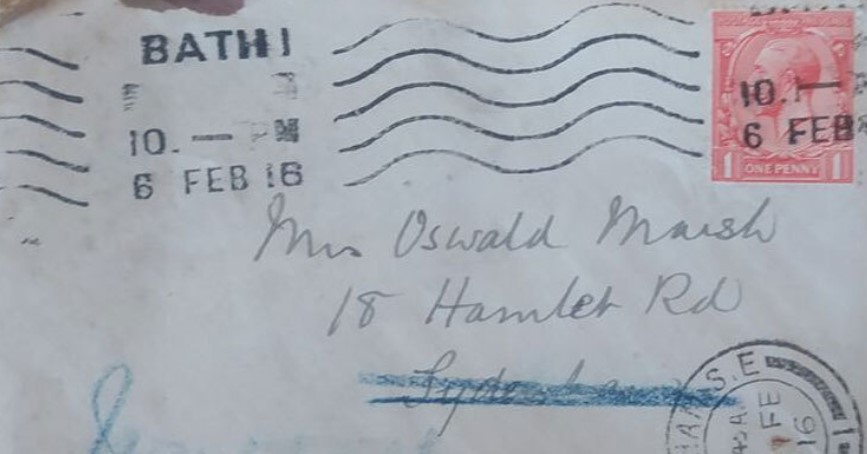 BATH 1
10. — PM
6 FEB 16
10. —
6 FEB
1 ONE PENNY 1
Mrs Oswald Marsh
18 Hamlet Rd
Sydenham
HAM. S.E
FE
16